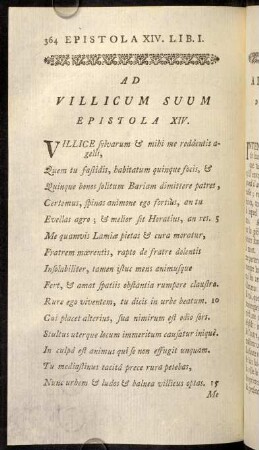 364 EPISTOLA XIV. LIB. I.
AD
VILLICUM SUUM
EPISTOLA XIV.
VILLICE silvarum & mihi me reddentis a-
gelli,
Quem tu fastidis, habitatum quinque focis, &
Quinque bonos solitum Bariam dimittere patres,
Certemus, spinas animone ego fortius, an tu
Evellas agro; & melior sit Horatius, an res. 5
Me quamvis Lamiæ pietas & cura moratur,
Fratrem mœrentis, rapto de fratre dolentis
Insolabiliter, tamen istuc mens animusque
Fert, & amat spatiis obstantia rumpere claustra.
Rure ego viventem, tu dicis in urbe beatum. 10
Cui placet alterius, sua nimirum est odio sors.
Stultus uterque locum immeritum causatur iniquè.
In culpâ est animus qui se non effugit unquam.
Tu mediastinus tacitâ prece rura petebas,
Nunc urbem & ludos & balnea villicus optas. 15
Me